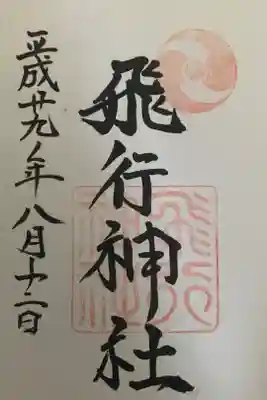 飛行神社
平成廿九年八月十二日